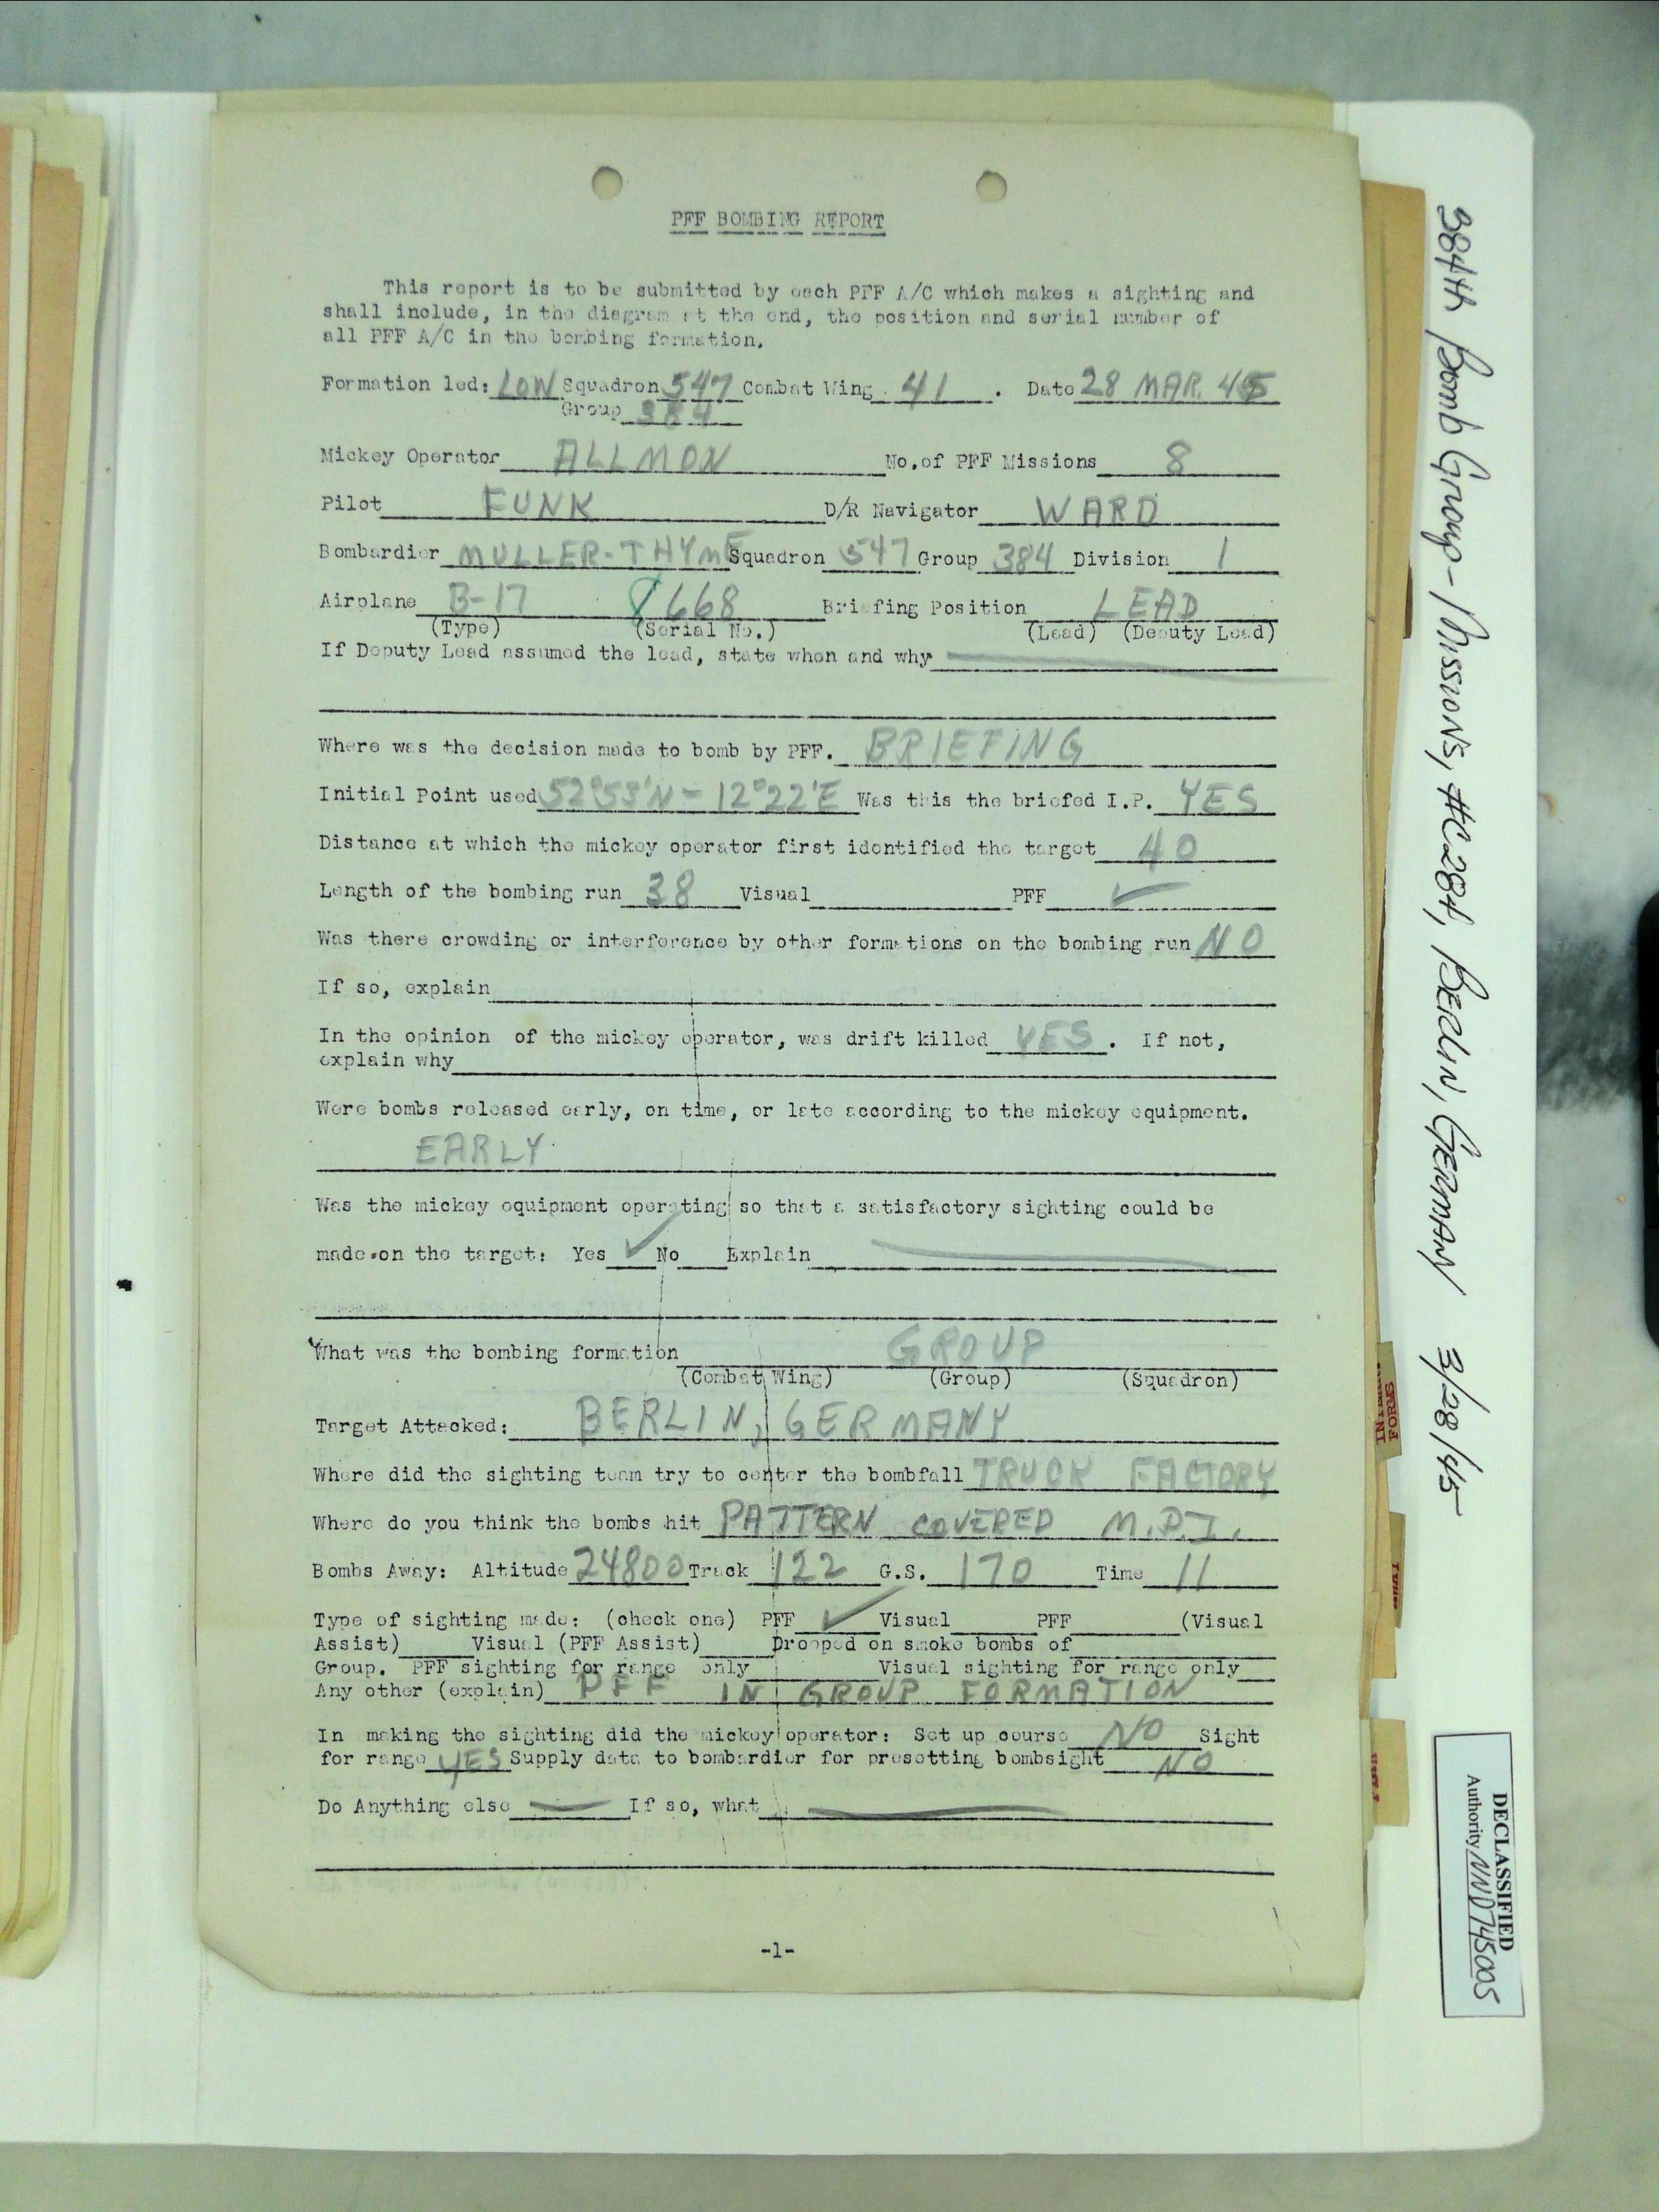 PFF BOMBING REPORT
This report is to be submitted by each PFF A/C which makes a sighting and
shall include, in the diagram at the end, the position and serial number of
all PFF A/C in the bombing formation.
Formation led: LOW Squadron 547 Combat Wing 41 . Date 28 MAR. 45
Group 384
Mickey Operator ALLMON No.of PFF Missions 8
Pilot FUNK D/R Navigator WARD
Bombardier MULLER-THYME Squadron 547 Group 384 Division 1
Airplane B-17 8668 Briefing Position LEAD
(Type) (Serial No.) (Lead) (Deputy Lead)
If Deputy Lead assumed the lead, state when and why
Where was the decision made to bomb by PFF. BRIEFING
Initial Point used 52°53'N - 12°22'E Was this the briefed I.P. YES
Distance at which the mickey operator first identified the target 40
Length of the bombing run 38 Visual PFF ✓
Was there crowding or interference by other formations on the bombing run NO
If so, explain
In the opinion of the mickey operator, was drift killed YES . If not,
explain why
Were bombs released early, on time, or late according to the mickey equipment.
EARLY
Was the mickey equipment operating so that a satisfactory sighting could be
made on the target: Yes ✓ No Explain
What was the bombing formation GROUP
(Combat Wing) (Group) (Squadron)
Target Attacked: BERLIN, GERMANY
Where did the sighting team try to center the bombfall TRUCK FACTORY
Where do you think the bombs hit PATTERN COVERED M.P.I.
Bombs Away: Altitude 24800 Track 122 G.S. 170 Time 11
Type of sighting made: (check one) PFF ✓ Visual PFF (Visual
Assist) Visual (PFF Assist) Dropped on smoke bombs of
Group. PFF sighting for range only Visual sighting for range only
Any other (explain) PFF IN GROUP FORMATION
In making the sighting did the mickey operator: Set up course NO Sight
for range YES Supply data to bombardier for presetting bombsight NO
Do Anything else If so, what
-1-
384th Bomb Group - Missions, #C284, BERLIN, GERMANY 3/28/45
FORMS
DECLASSIFIED
Authority NND745005